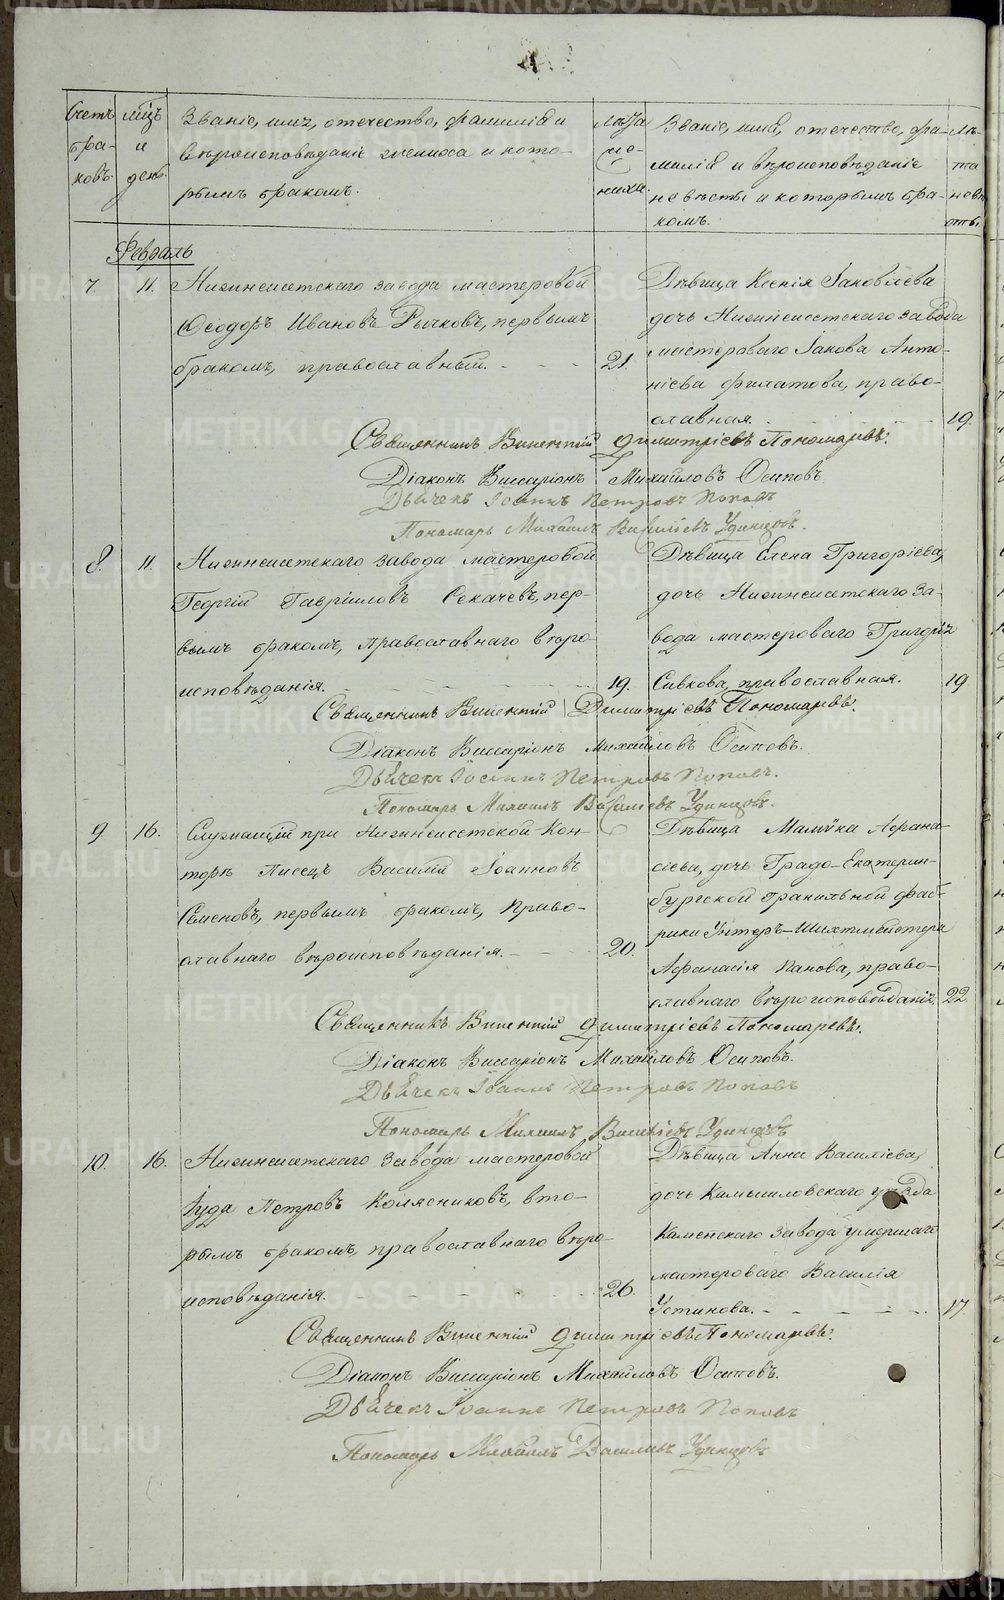 Счетъ браковъ.
мѣсяцъ и день.
Званіе, имя, отечество, фамилія и
вѣроисповѣданіе жениха и кото-
рымъ бракомъ.
Лѣта жениха.
Званіе, имя, отечество, фа-
милія и вѣроисповѣданіе
невѣсты и которымъ бра-
комъ.
Лѣта невѣсты.
Февраль
7. 11. Нижнеисетскаго завода мастеровой
Ѳеодоръ Ивановъ Рычковъ, первымъ
бракомъ, православный. 21.
Дѣвица Ксенія Іаковлева
дочь Нижнеисетскаго завода
мастероваго Іакова Анто-
ніева Филатова, право-
славная. 19.
Священникъ Викентій Димитріевъ Пономаревъ.
Діаконъ Виссаріонъ Михайловъ Осиповъ
Дьячекъ Іоаннъ Петровъ Поповъ
Пономарь Михаилъ Васильевъ Удинцовъ.
8. 11. Нижнеисетскаго завода мастеровой
Георгій Гавріиловъ Секачевъ, пер-
вымъ бракомъ, православнаго вѣро-
исповѣданія. 19.
Дѣвица Елена Григоріева,
дочь Нижнеисетскаго за-
вода мастероваго Григорія
Сивкова, православная. 19
Священникъ Викентій Димитріевъ Пономаревъ.
Діаконъ Виссаріонъ Михайловъ Осиповъ.
Дьячекъ Іоаннъ Петровъ Поповъ.
Пономарь Михаилъ Васильевъ Удинцовъ.
9. 16. Служащій при Нижнеисетской Кон-
торѣ писецъ Василій Іоанновъ
Семеновъ, первымъ бракомъ, право-
славнаго вѣроисповѣданія. 20.
Дѣвица Афана-
сіева, дочь Градо-Екатерин-
бургской Гранильной фаб-
рики Унтеръ-Шихтмейстера
Афанасія Панова, право-
славнаго вѣроисповѣданія. 22
Священникъ Викентій Димитріевъ Пономаревъ.
Діаконъ Виссаріонъ Михайловъ Осиповъ.
Дьячекъ Іоаннъ Петровъ Поповъ
Пономарь Михаилъ Васильевъ Удинцовъ
10. 16. Нижнеисетскаго завода мастеровой
Іуда Петровъ Колясниковъ, вто-
рымъ бракомъ, православнаго вѣро-
исповѣданія. 26.
Дѣвица Анна Василіева,
дочь Камышловскаго уѣзда
Каменскаго завода умершаго
мастероваго Василія
Устинова. 17
Священникъ Викентій Димитріевъ Пономаревъ.
Діаконъ Виссаріонъ Михайловъ Осиповъ.
Дьячекъ Іоаннъ Петровъ Поповъ
Пономарь Михаилъ Васильевъ Удинцовъ
METRIKI.GASO-URAL.RU